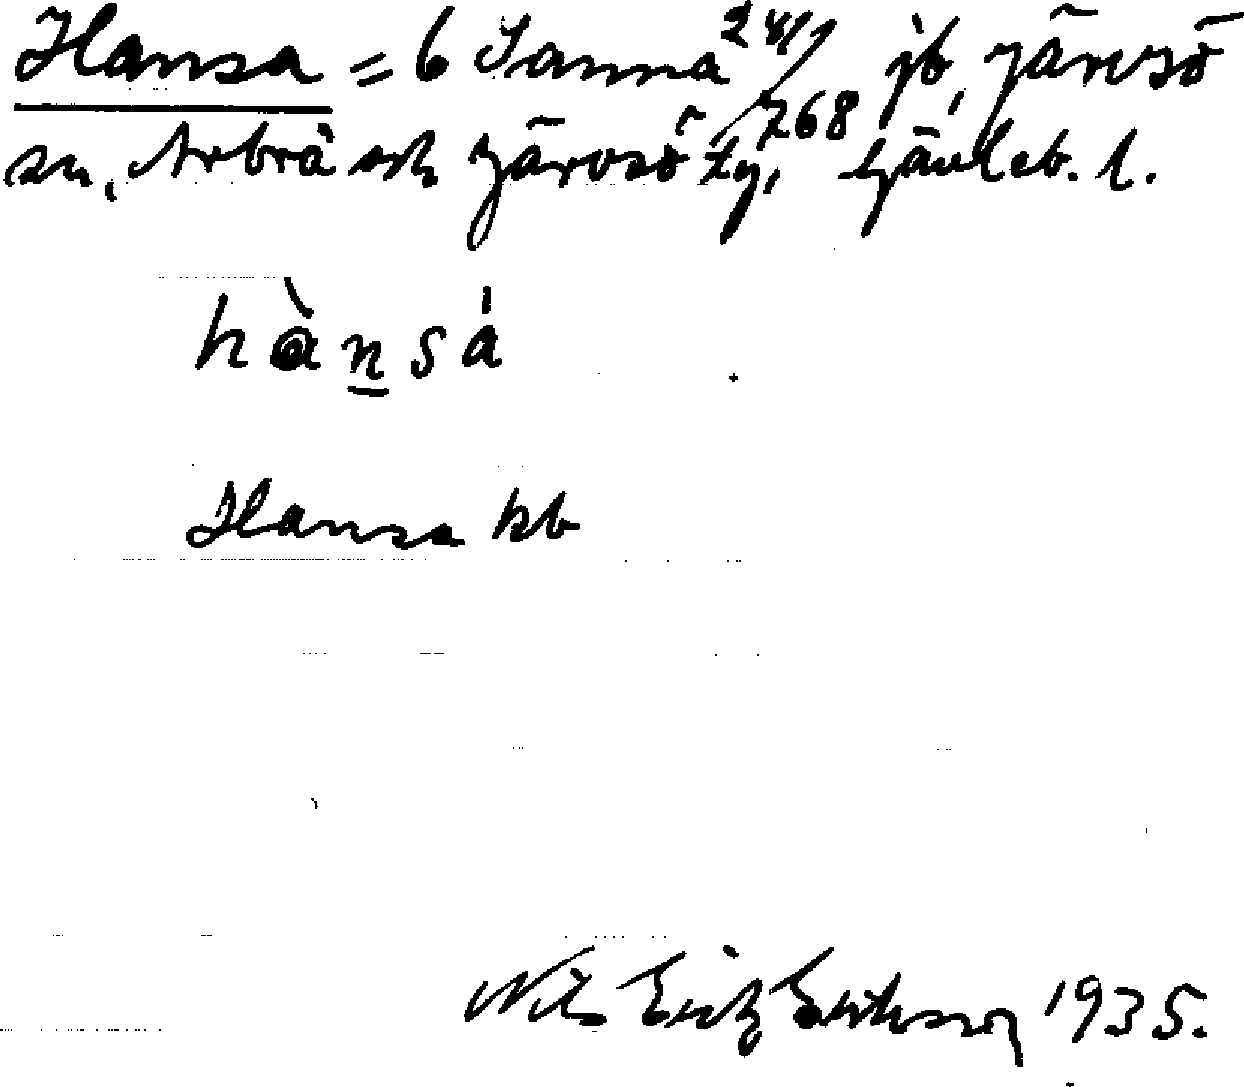 Hansa = 6 Sanna 241/768 jb, Järvsö
sn, Arbrå och Järvsö tg, Gävleb. l.
hànsá
Hansa kb
Nils Erik Eriksson 1935.